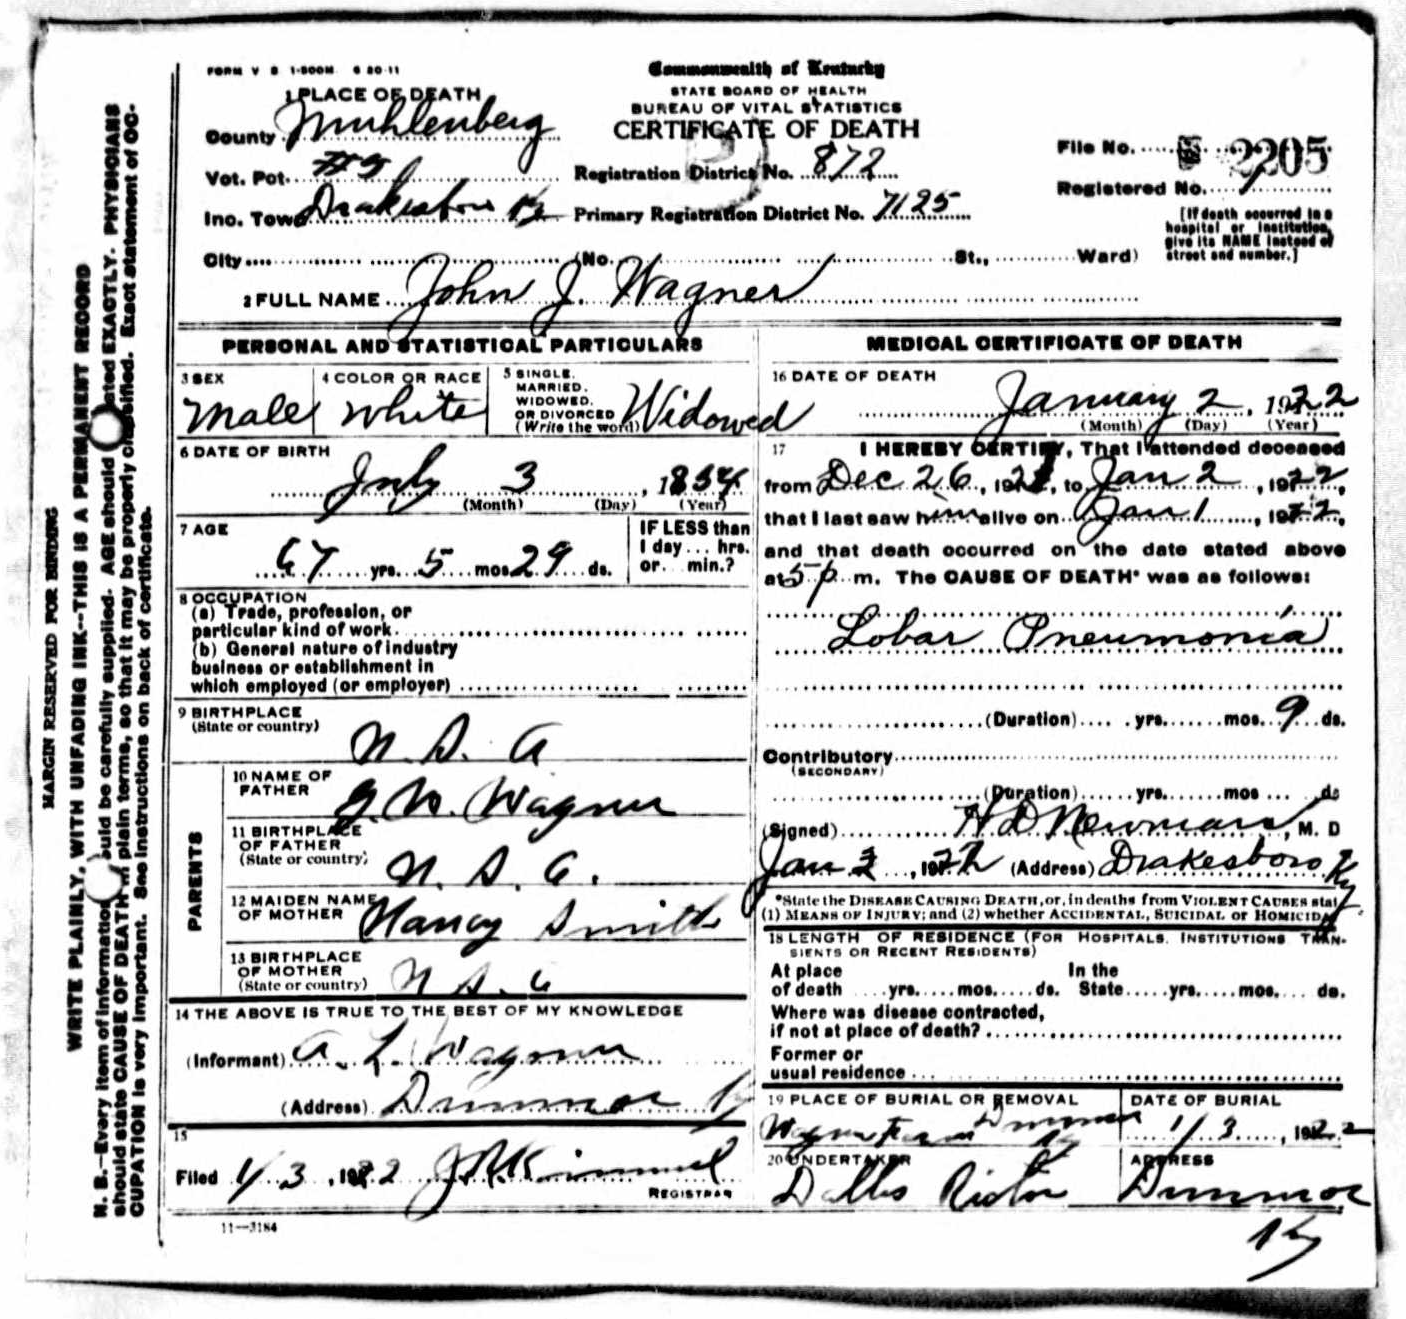 FORM V S 1-500M 6 20-11
Commonwealth of Kentucky
STATE BOARD OF HEALTH
BUREAU OF VITAL STATISTICS
CERTIFICATE OF DEATH
1 PLACE OF DEATH
County Muhlenberg
Vot. Pct. #9
Inc. Town Drakesboro Ky
City (No. St., Ward)
Registration District No. 872
Primary Registration District No. 7125
File No. 2205
Registered No. 1
[If death occurred in a
hospital or institution,
give its NAME instead of
street and number.]
2 FULL NAME John J. Wagner
PERSONAL AND STATISTICAL PARTICULARS
3 SEX
Male
4 COLOR OR RACE
White
5 SINGLE.
MARRIED.
WIDOWED.
OR DIVORCED
(Write the word)
Widowed
6 DATE OF BIRTH
July 3, 1854
(Month) (Day) (Year)
7 AGE
67 yrs. 5 mos 29 ds.
IF LESS than
1 day ... hrs.
or ... min.?
8 OCCUPATION
(a) Trade, profession, or
particular kind of work
(b) General nature of industry
business or establishment in
which employed (or employer)
9 BIRTHPLACE
(State or country)
PARENTS
10 NAME OF
FATHER
Wagner
11 BIRTHPLACE
OF FATHER
(State or country)
12 MAIDEN NAME
OF MOTHER
Nancy Smith
13 BIRTHPLACE
OF MOTHER
(State or country)
14 THE ABOVE IS TRUE TO THE BEST OF MY KNOWLEDGE
(Informant) A. L. Wagner
(Address) Dunmor Ky
15
Filed 1/3, 1922 J R Kimmel
REGISTRAR
11—3184
MEDICAL CERTIFICATE OF DEATH
16 DATE OF DEATH
January 2, 1922
(Month) (Day) (Year)
17 I HEREBY CERTIFY, That I attended deceased
from Dec 26, 1921, to Jan 2, 1922,
that I last saw him alive on Jan 1, 1922,
and that death occurred on the date stated above
at 5 p m. The CAUSE OF DEATH* was as follows:
Lobar Pneumonia
(Duration) yrs. mos. 9 ds.
Contributory
(SECONDARY)
(Duration) yrs. mos ds
(Signed) H D Newman, M. D
Jan 2, 1922 (Address) Drakesboro Ky
*State the DISEASE CAUSING DEATH, or, in deaths from VIOLENT CAUSES state
(1) MEANS OF INJURY; and (2) whether ACCIDENTAL, SUICIDAL or HOMICIDAL
18 LENGTH OF RESIDENCE (FOR HOSPITALS. INSTITUTIONS TRAN-
SIENTS OR RECENT RESIDENTS)
At place In the
of death yrs. mos. ds. State yrs. mos. ds.
Where was disease contracted,
if not at place of death?
Former or
usual residence
19 PLACE OF BURIAL OR REMOVAL
Wagner Farm Dunmor
Ky
DATE OF BURIAL
1/3, 1922
20 UNDERTAKER
Dallas
ADDRESS
Dunmor
Ky
MARGIN RESERVED FOR BINDING
WRITE PLAINLY, WITH UNFADING INK—THIS IS A PERMANENT RECORD
N. B.—Every item of information should be carefully supplied. AGE should be stated EXACTLY. PHYSICIANS
should state CAUSE OF DEATH in plain terms, so that it may be properly classified. Exact statement of OC-
CUPATION is very important. See instructions on back of certificate.